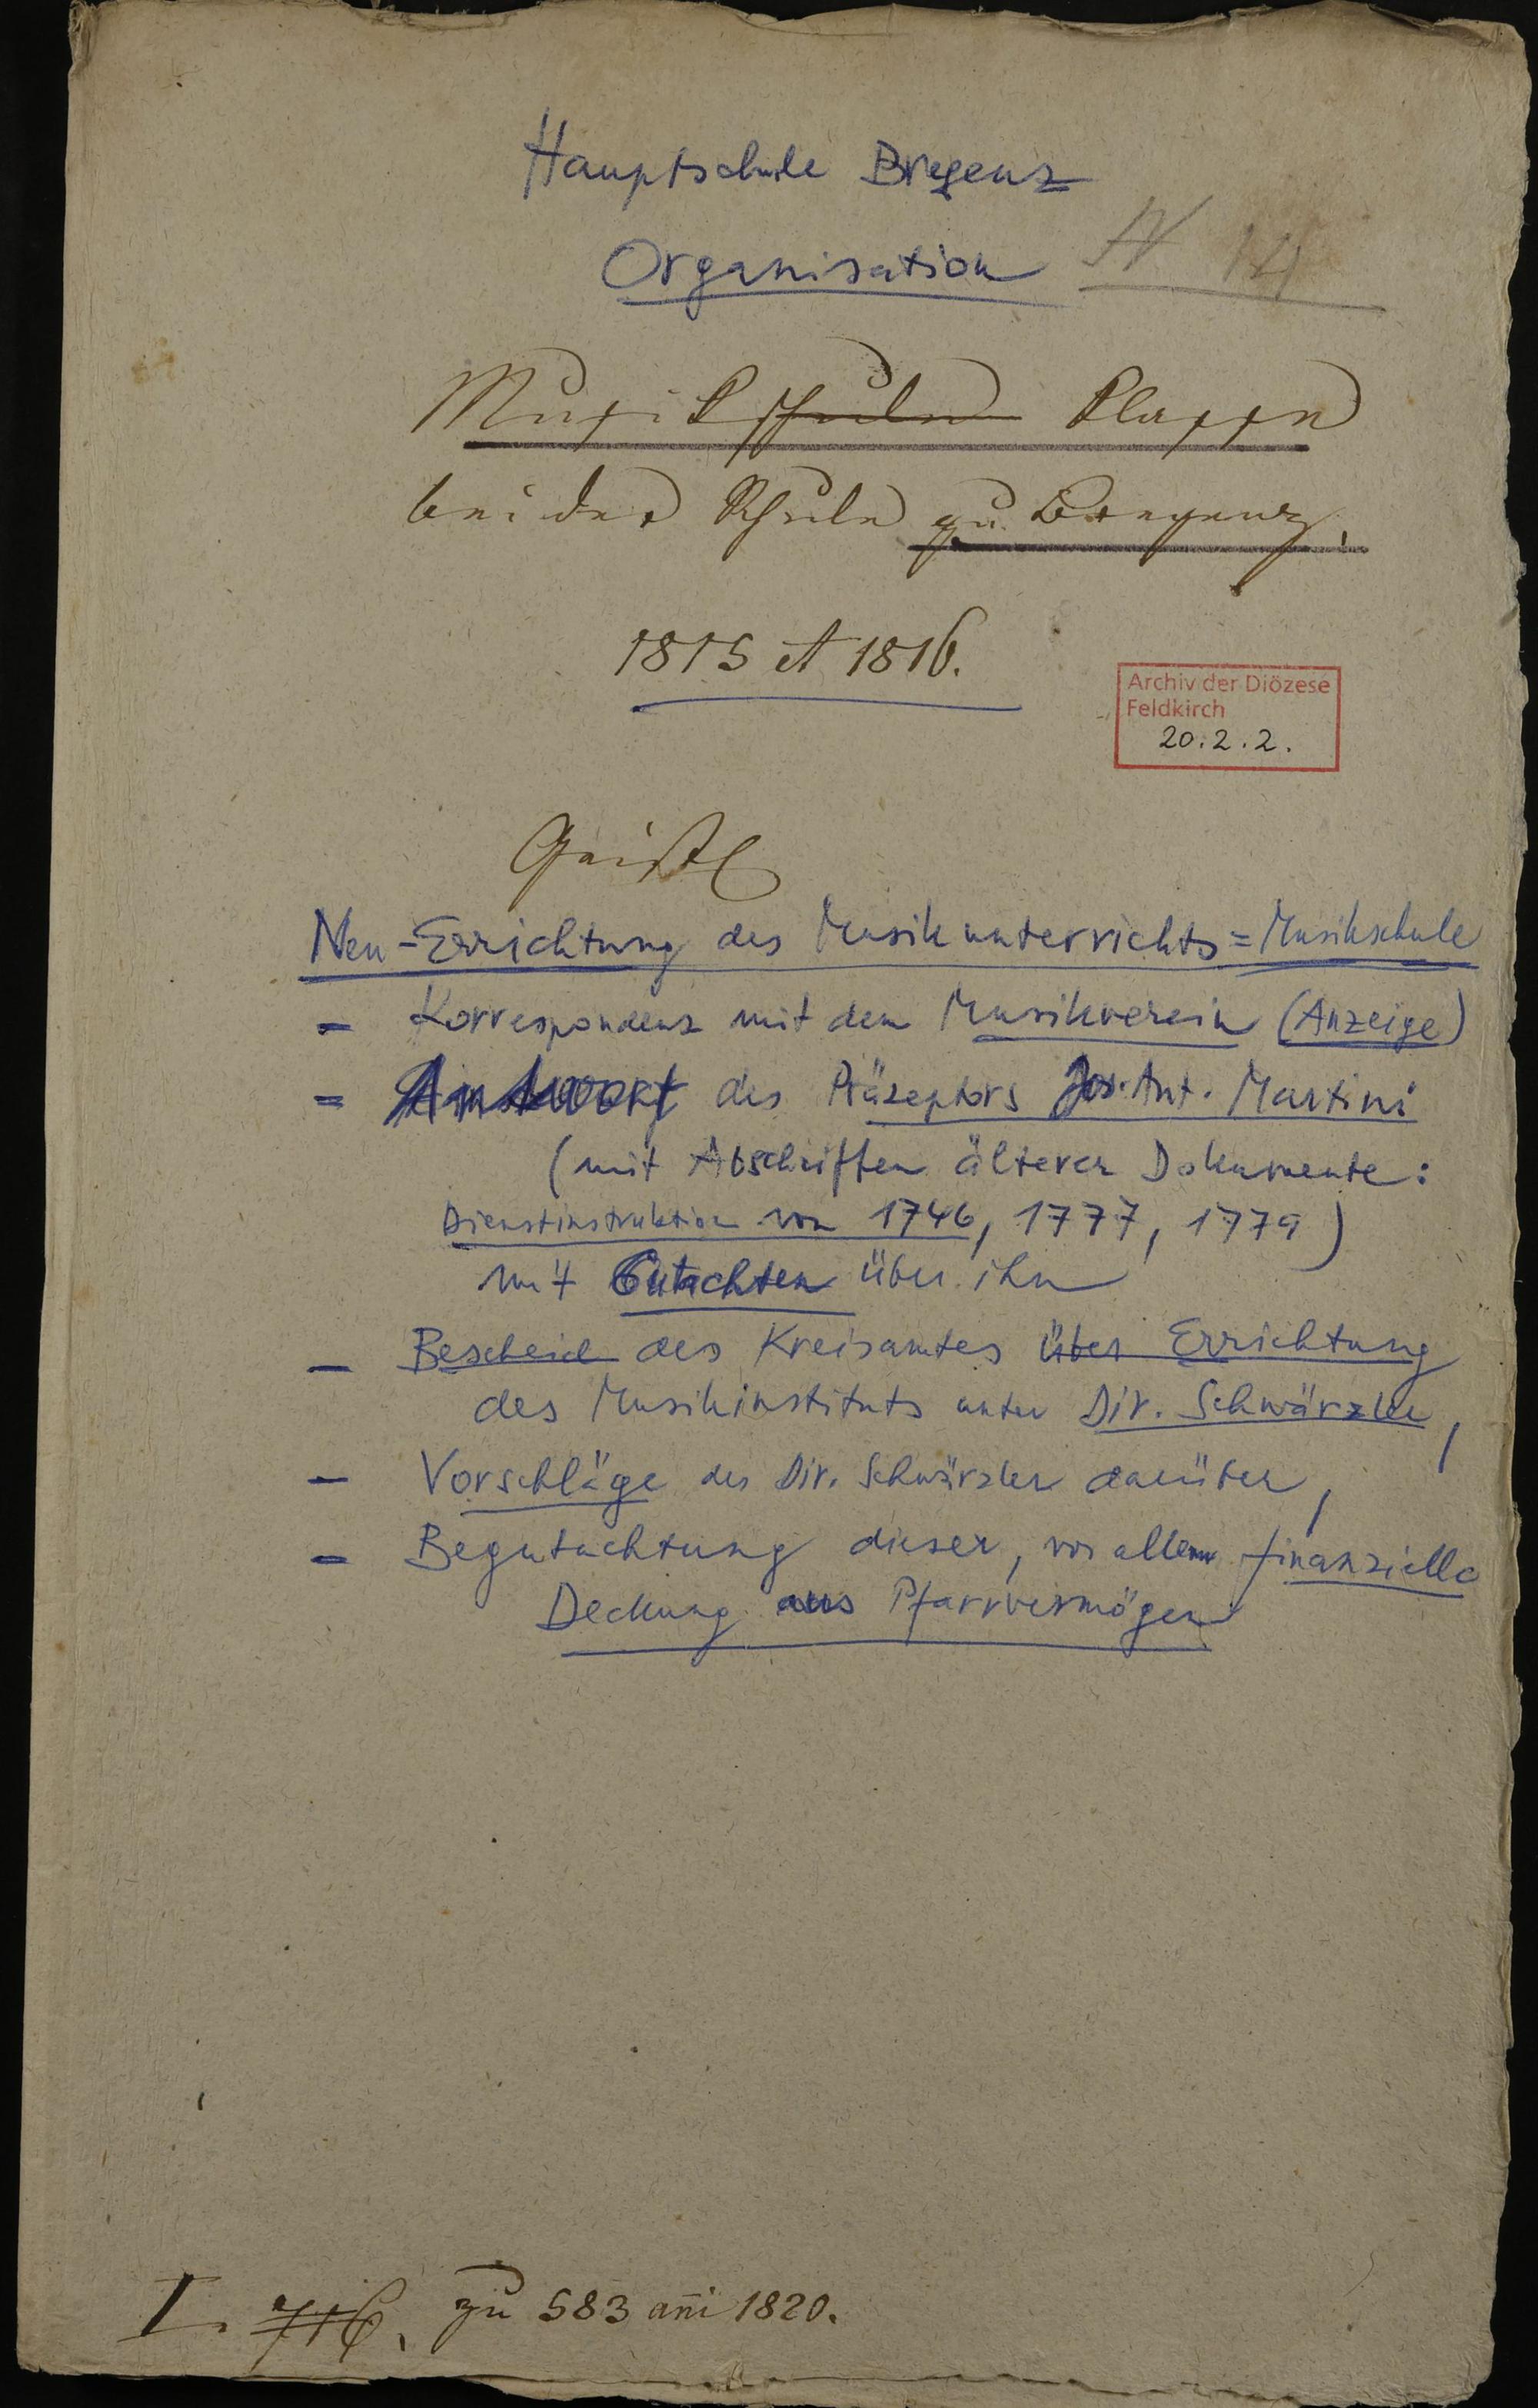 Hauptschule Bregenz
Organisation
N 14
Musikschule Klasse
bei der Schule zu Bregenz.
1815 et 1816.
Archiv der Diözese
Feldkirch
20.2.2.
Geistl
Neu-Errichtung des Musikunterrichts=Musikschule
- Korrespondenz mit dem Musikverein (Anzeige)
= Antwort des Präzeptors Jos. Ant. Martini
(mit Abschriften älterer Dokumente:
Dienstinstruktion von 1746, 1777, 1779)
mit Gutachten über ihn
- Bescheid des Kreisamtes über Errichtung
des Musikinstituts unter Dir. Schwärzler,
- Vorschläge des Dir. Schwärzler darüber,
- Begutachtung dieser, vor allem finanzielle
Deckung aus Pfarrvermögen
I. 716. zu 583 ani 1820.